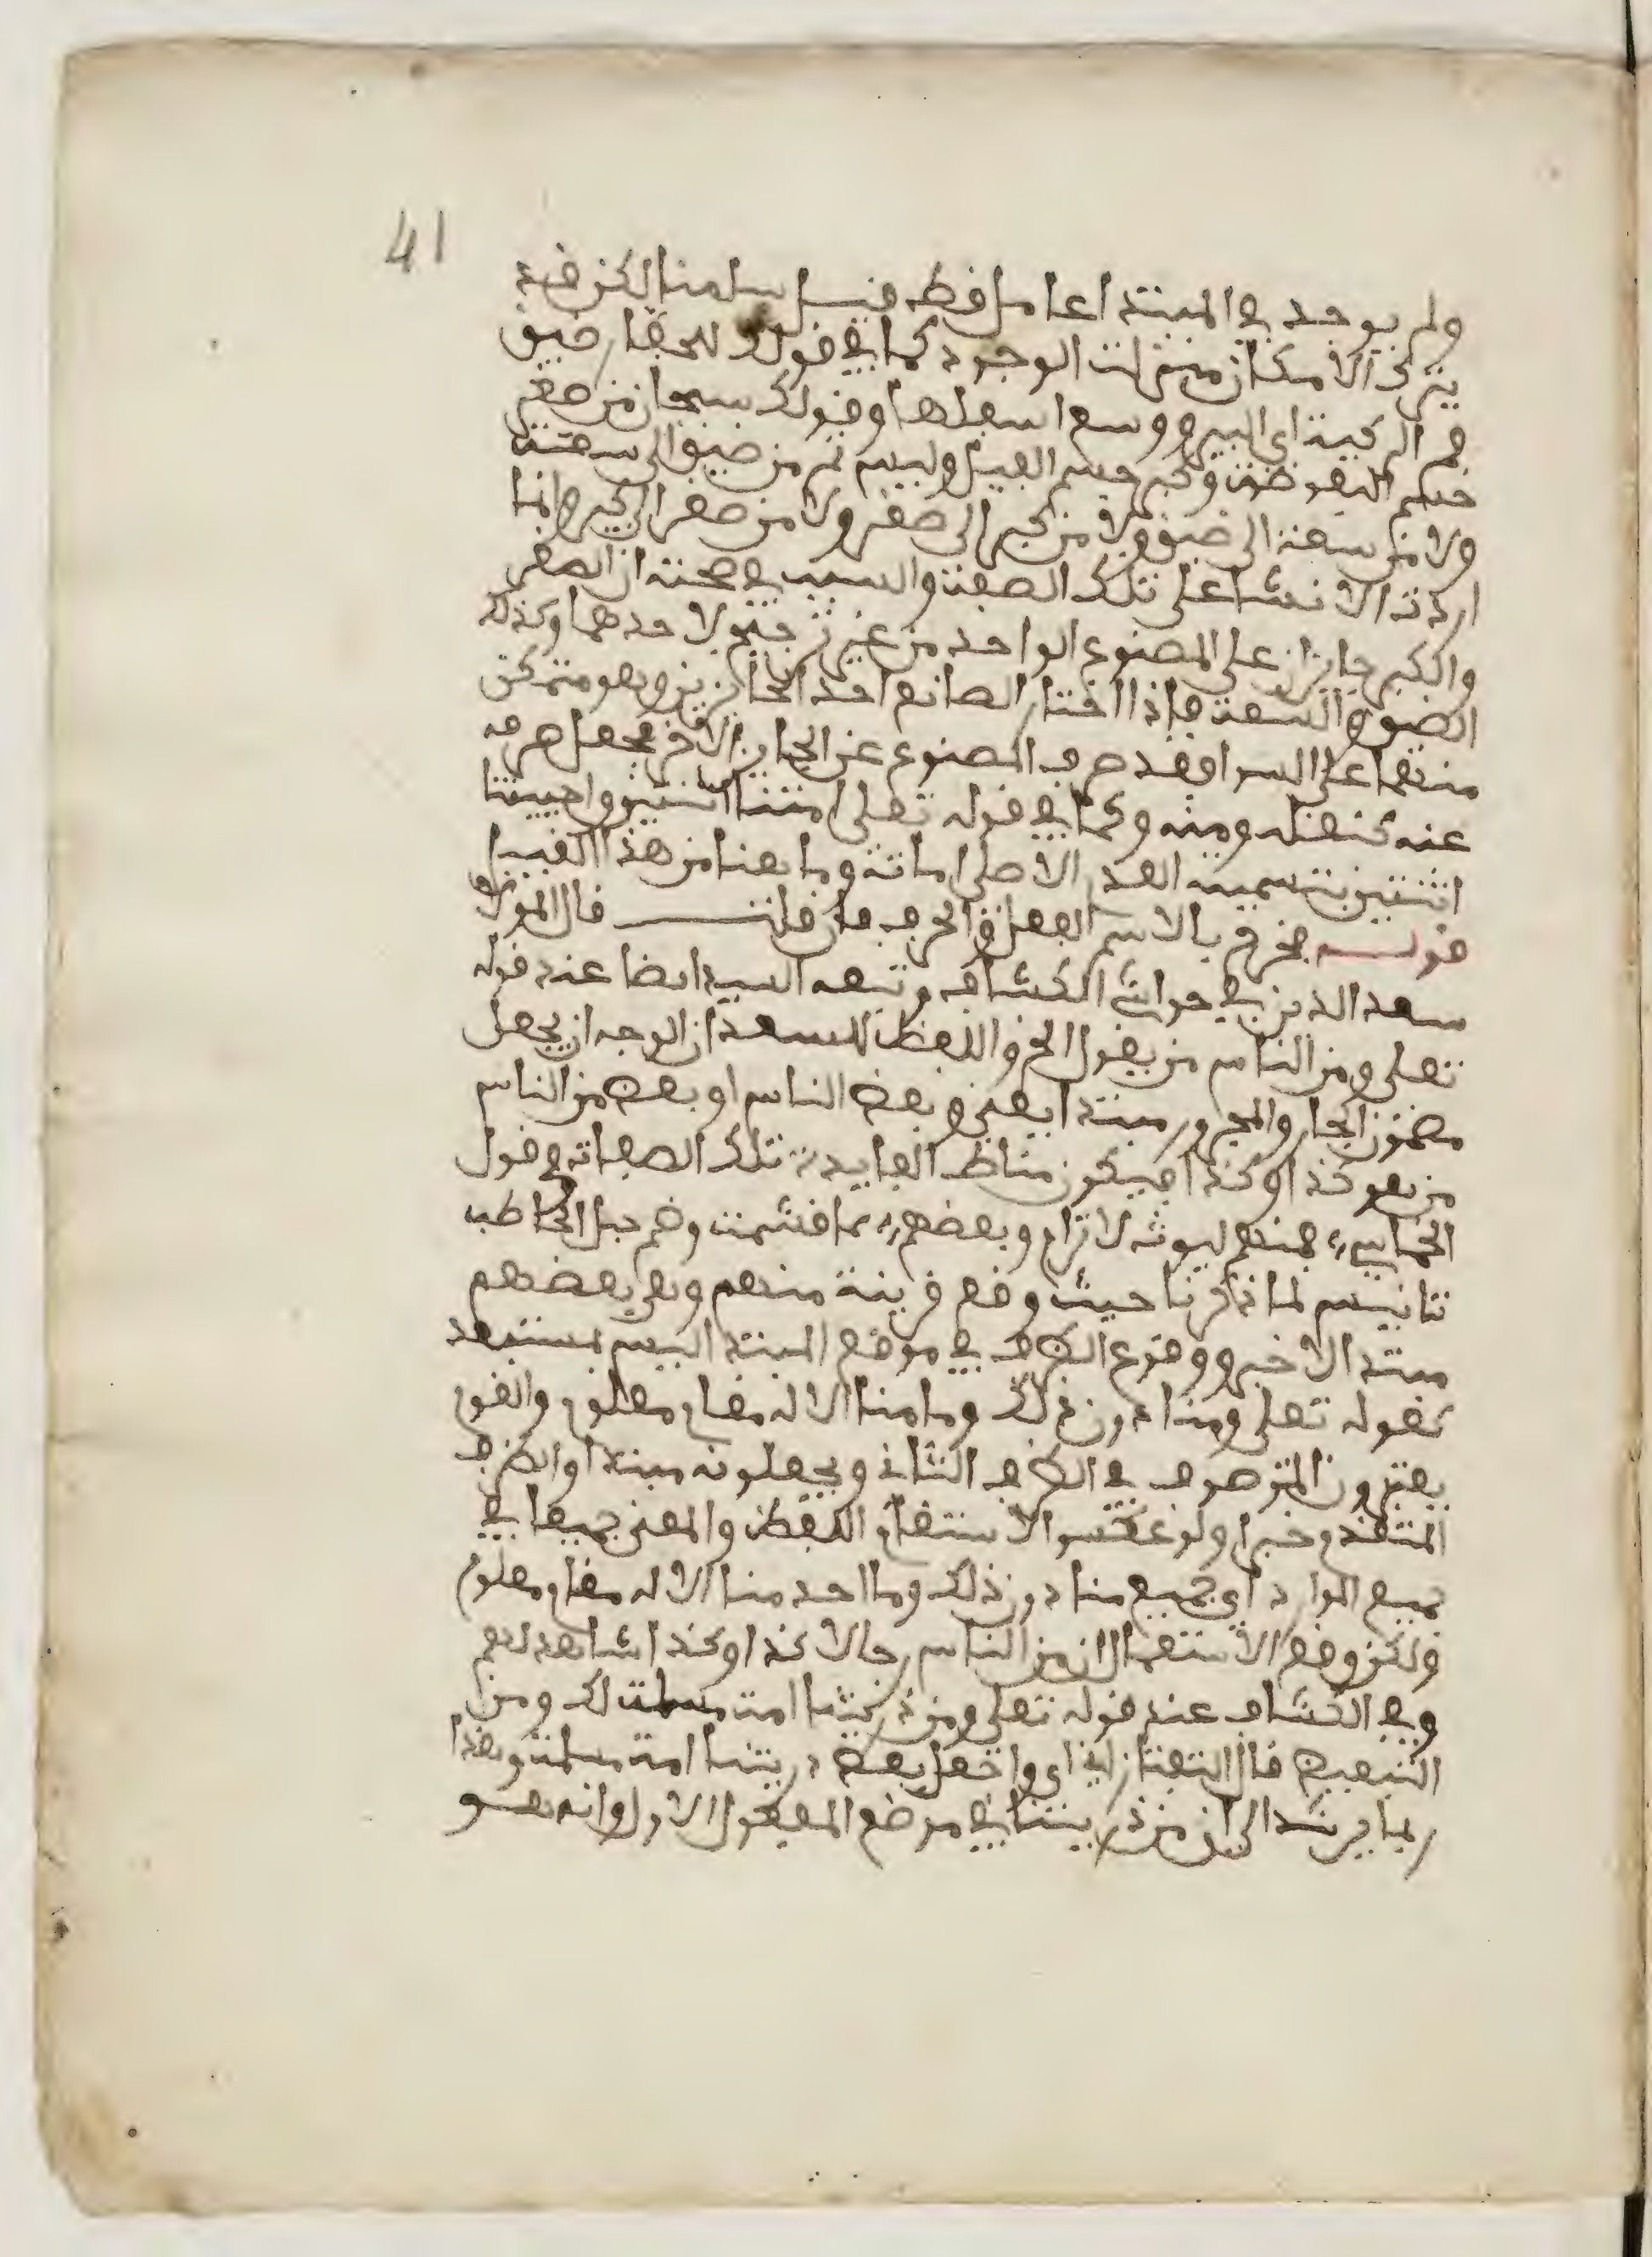 41
ولم يوجد في المبتدا عامل قط قيل سلمنا لكن قد
ينزل الامكان منزلت الوجود كما في قولك للحفار ضيق
فم الركية اي البير ووسع اسفلها وقولك سبحان من صغر
جسم البعوضة وكبر جسم الفيل وليس ثم من ضيق الى سعة
ولا من سعة الى ضيق ولا من كبر الى صغر ولا من صغر الى كبر وانما
اردت الانشا على تلك الصفة والسبب في صحته ان الصغر
والكبر جايزان على المصنوع الواحد من غير ترجيح لاحدهما وكذلك
الضيق والسعة فاذا اختار الصانع احد الجايزين وهو متمكن
منهما على السوا فقد صرف المصنوع عن الجايز الاخر فجعل صرفه
عنه كنقله ومنه وكما في قوله تعلى امتنا اثنتين واحييتنا
اثنتين بتسمية العدم الاصلي اماتة وما هنا من هذا القبيل
قولـــه فخرج بالاسم الفعل والحرف فان قلتــــ قال المولى
سعد الدين في حواشي الكشاف وتبعه السيد ايضا عند قوله
تعلى ومن الناس من يقول الخ واللفظ للسعد ان الوجه ان يجعل
مضمون الجار والمجرور مبتدا يعني وبعض الناس او بعض من الناس
من هو كذا وكذا فيكون مناط الفايدة تلك الصفات وفي قول
الحماسي فمنهم ليوث لا ترام وبعضهم مما قمشت وضم حبل الحاطب
تانيس لما ذكرنا حيث وقع قرينة منهم وهي بعضهم
مبتدا لا خبر ووقوع الظرف في موضع المبتدا ليس بمستبعد
كقوله تعلى ومنا دون ذلك وما منا الا له مقام معلوم والقوم
يقدرون الموصوف في الظرف الثاني ويجعلونه مبتدا والظرف
المتقدم خبرا ولو عكسوا لاستقام اللفظ والمعنى جميعا في
جميع المواد اي جميع منا دون ذلك وما احد منا الا له مقام معلوم
ولكن وقع الاستعمال ان من الناس رجالا كذا وكذا شاهد لهم
وفي الكشاف عند قوله تعلى ومن ذريتنا امة مسلمة لك ومن
للتبعيض قال التفتازاني اي واجعل بعض ذريتنا امة مسلمة وهذا
ربما يرشد الى ان من ذريتنا في موضع المفعول الاول وانه هـو